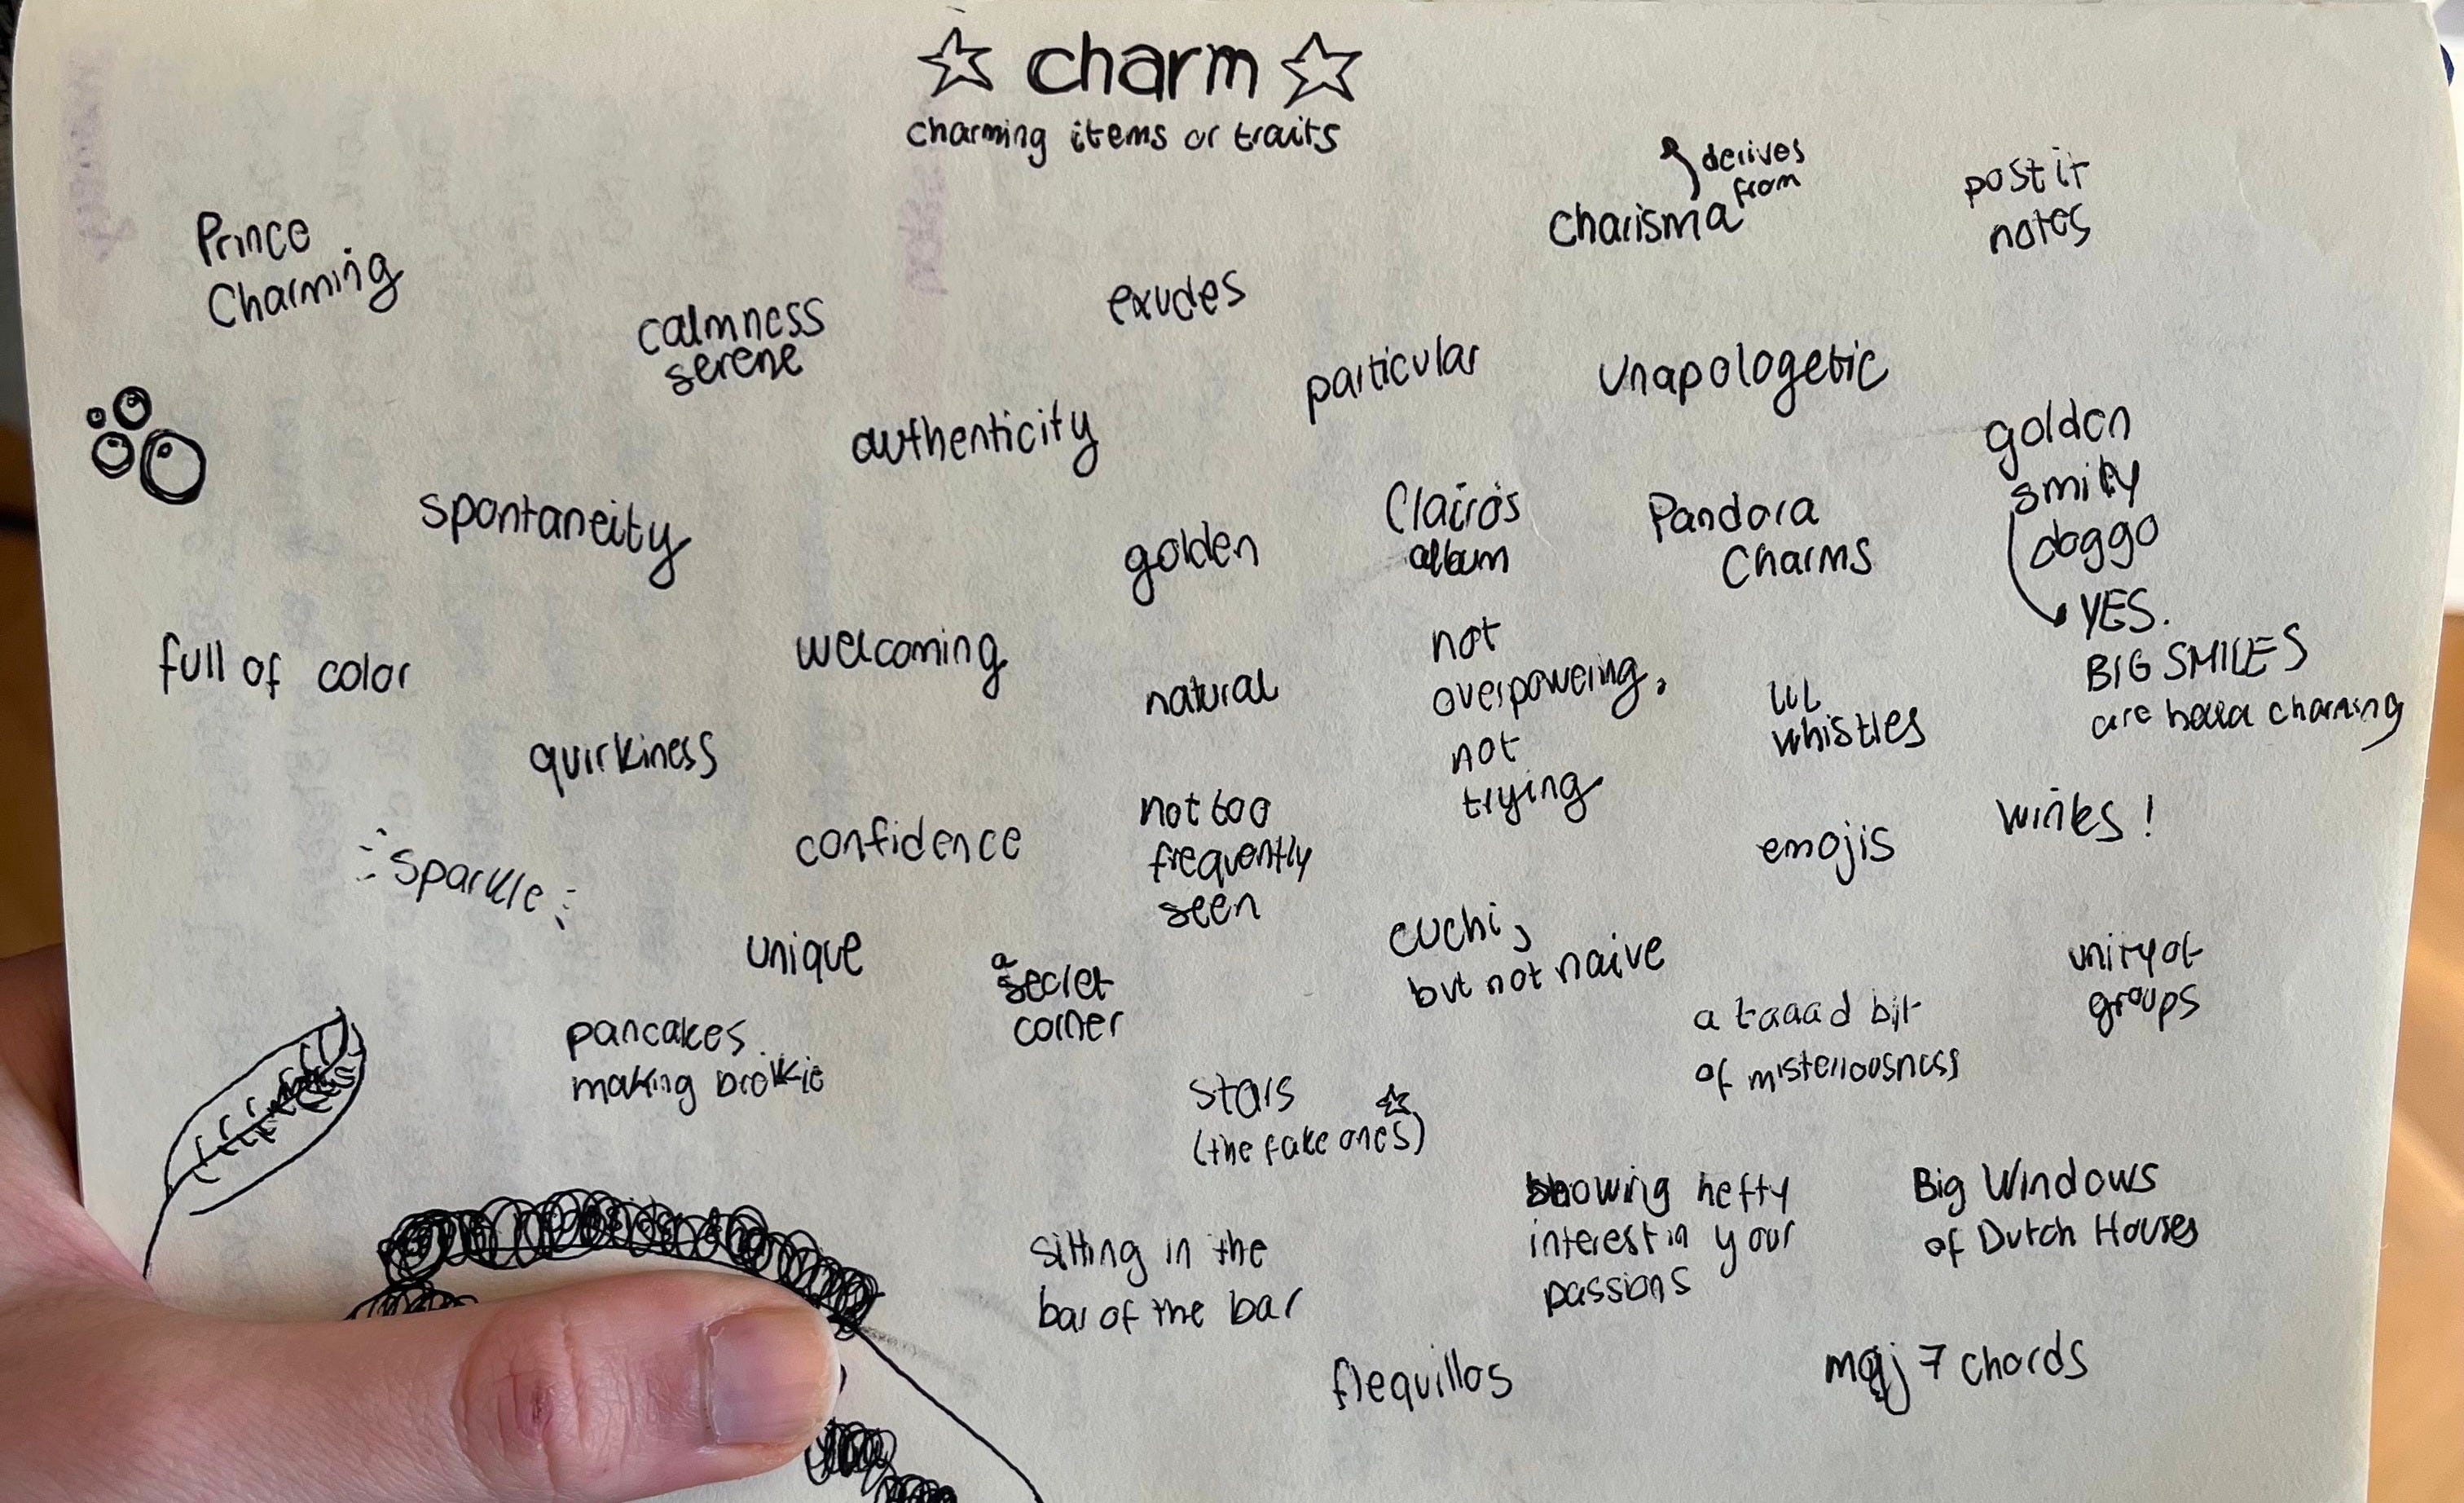 charm
charming items or traits
derives
from
charisma
post it
notes
Prince
Charming
calmness
serene
exudes
particular
unapologetic
authenticity
golden
smily
doggo
YES.
BIG SMILES
are hella charming
spontaneity
golden
Clairo's
album
Pandora
Charms
full of color
welcoming
natural
not
overpowering,
not
trying
lil
whistles
quirkiness
confidence
not too
frequently
seen
emojis
winks!
sparkle
unique
a
secret
corner
cuchi,
but not naive
unity of
groups
pancakes
making
a taaad bit
of misteriousness
stars
(the fake ones)
showing hefty
interest in your
passions
Big Windows
of Dutch Houses
sitting in the
bar of the bar
flequillos
maj 7 chords